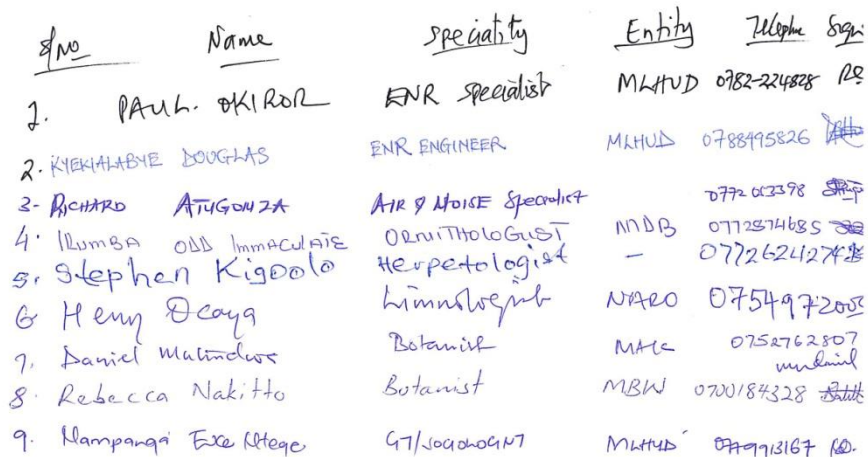 S/No Name Speciality Entity Telephone Sign
1. PAUL. OKIROR ENR Specialist MLHUD 0782-224828
2. KYEKIALABYE DOUGLAS ENR ENGINEER MLHUD 0788495826
3- RICHARD ATUGONZA AIR & NOISE Specialist 0772 013398
4. IRUMBA ODD ImmACULATE ORNITHOLOGIST 0772574685
5. Stephen Kigoolo Herpetologist - 0772624274
6 Henry Ocaya Limnologist 075497200
7. Daniel Botanist MAK 0752762807
8. Rebecca Nakitto Botanist 0700184328
9. Nampanga MLHUD